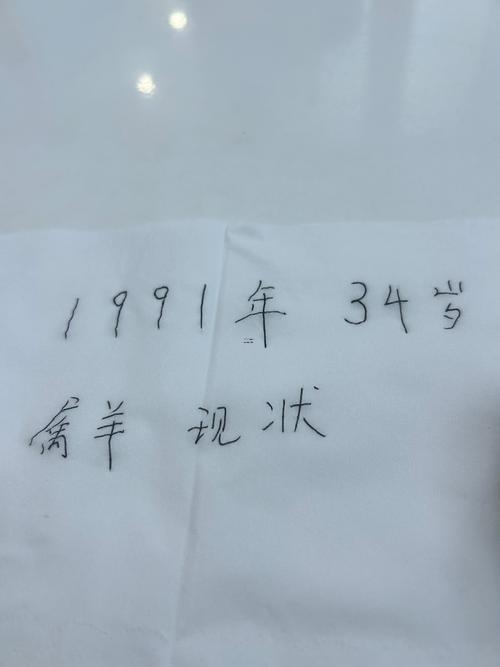 1991年 34岁
属羊 现状